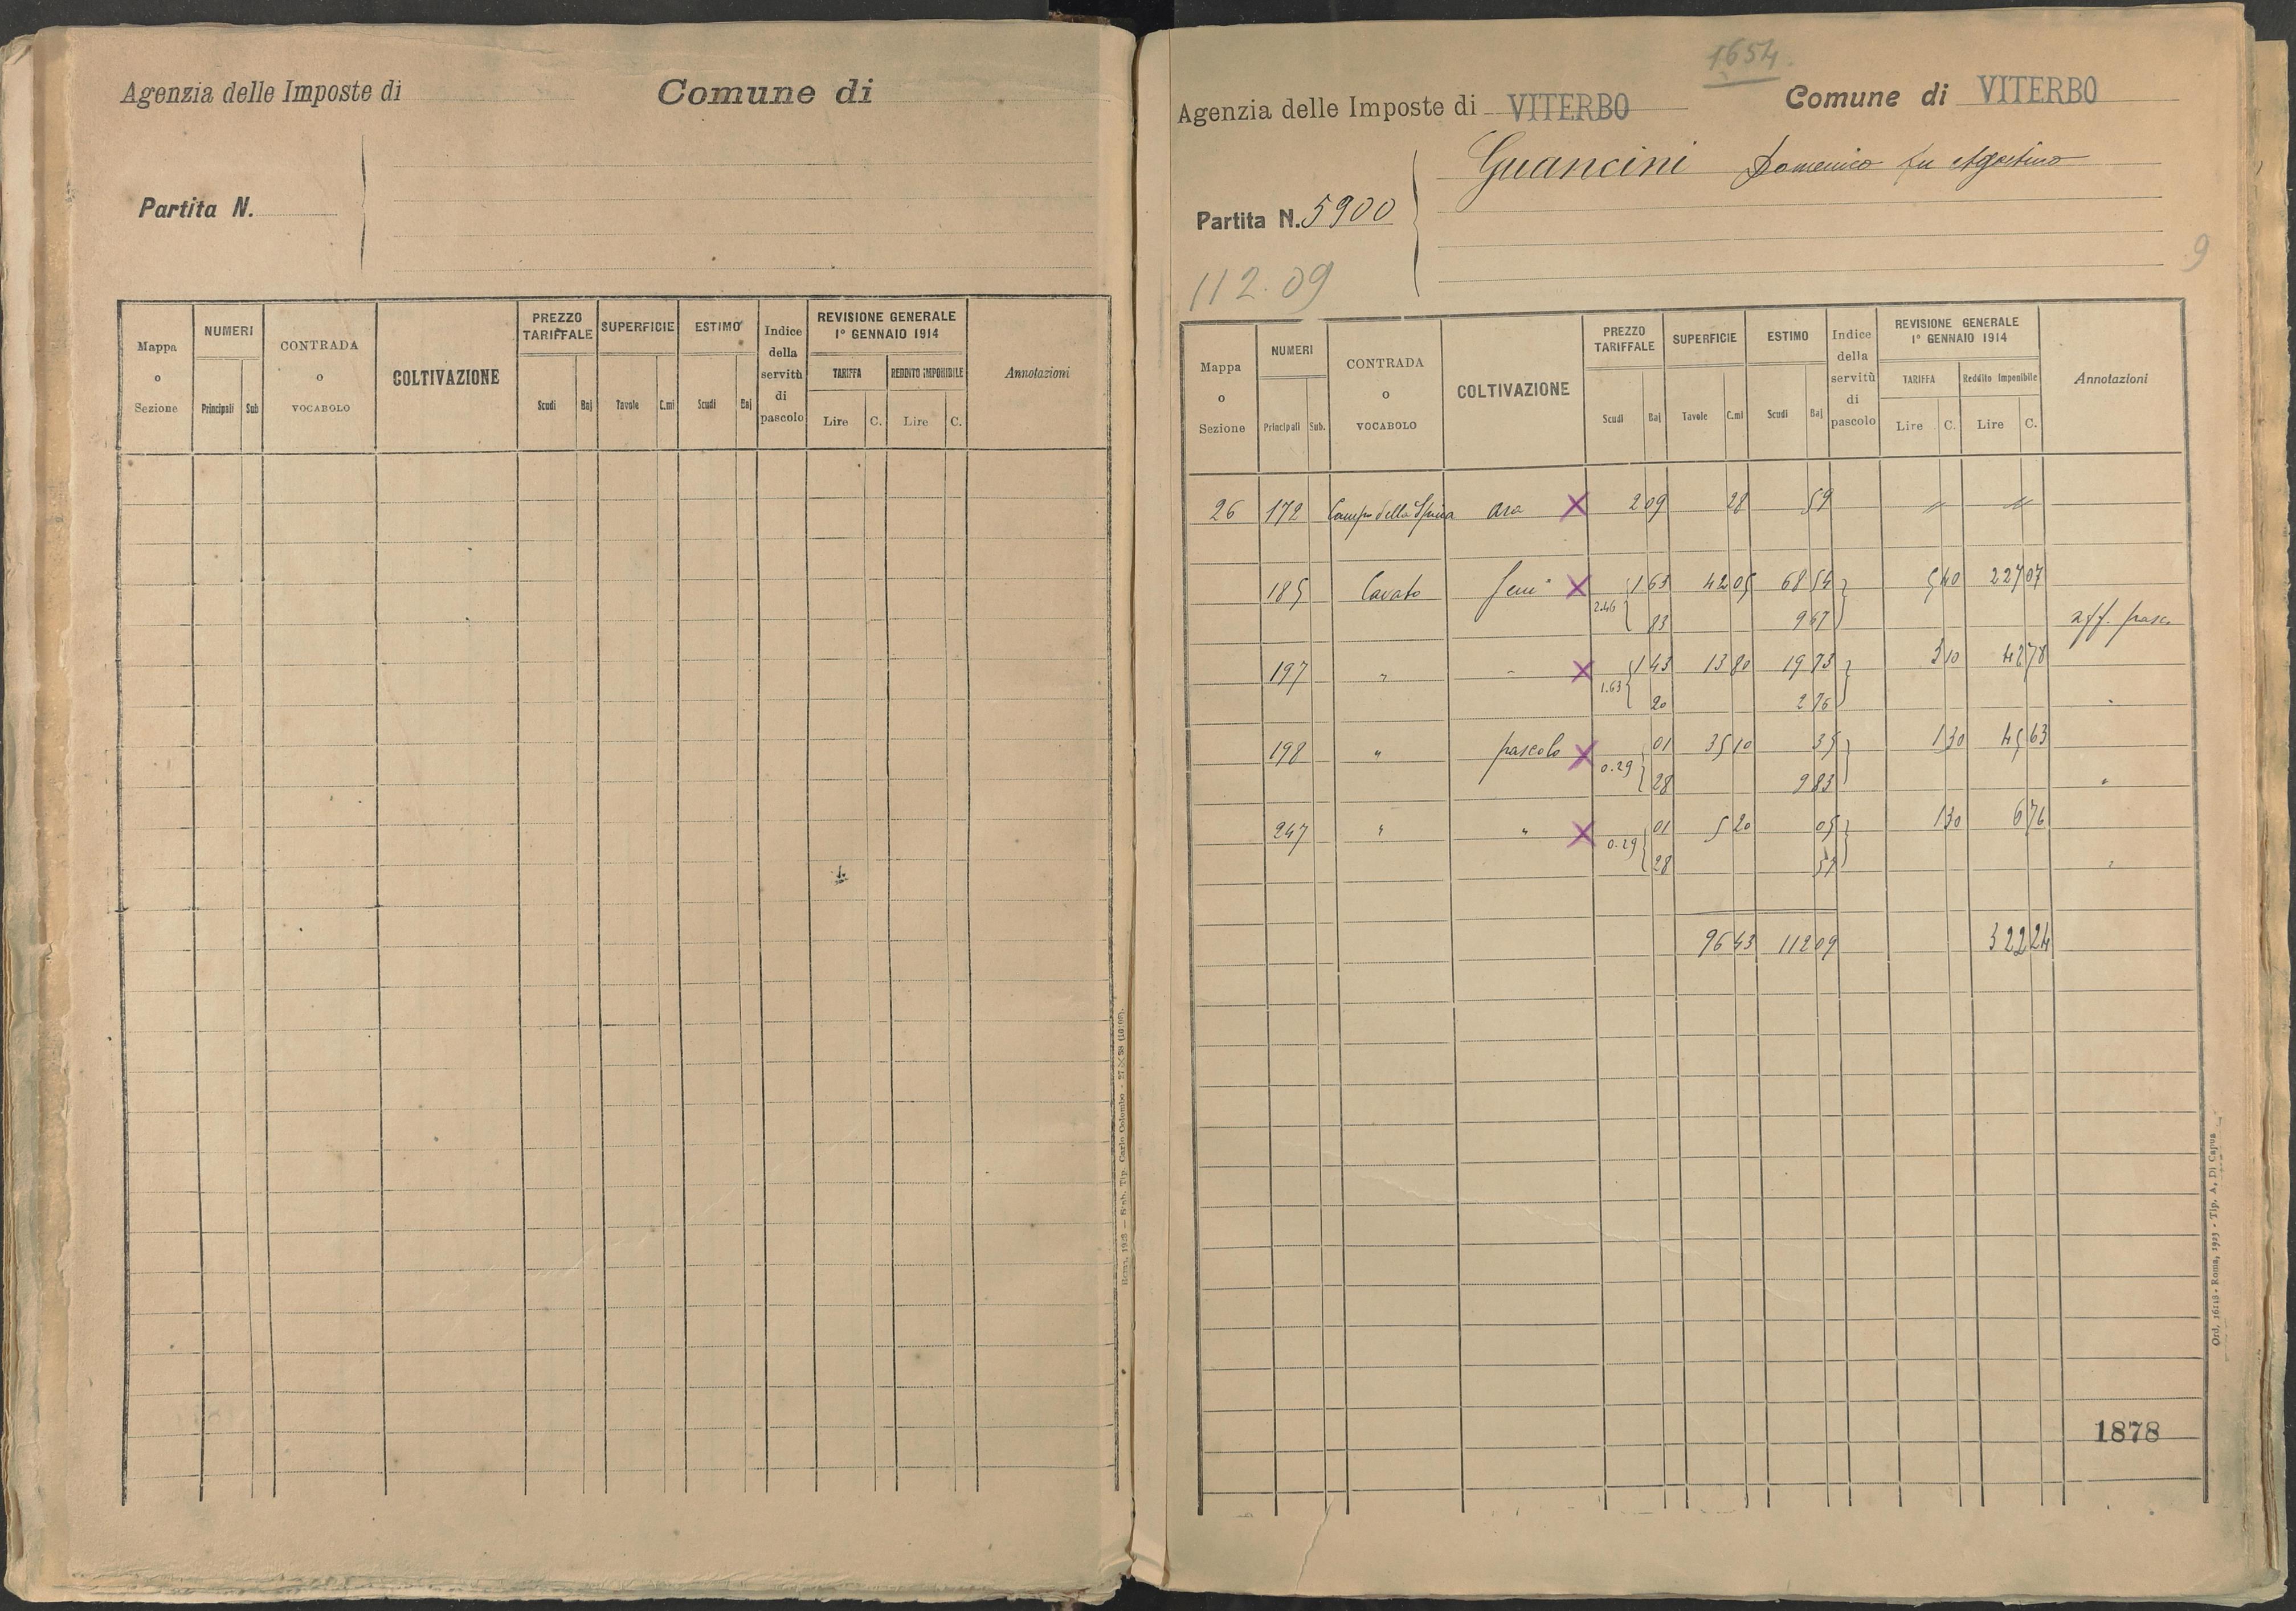 Agenzia delle Imposte di
Comune di
Partita N.
Mappa o Sezione
NUMERI
Principali Sub
CONTRADA o VOCABOLO
COLTIVAZIONE
PREZZO TARIFFALE
Scudi Baj
SUPERFICIE
Tavole C.mi
ESTIMO
Scudi Baj
Indice della servitù di pascolo
REVISIONE GENERALE 1° GENNAIO 1914
TARIFFA
Lire C.
REDDITO IMPONIBILE
Lire C.
Annotazioni
Roma, 1928 — Stab. Tip. Carlo Colombo
1654.
Agenzia delle Imposte di VITERBO
Comune di VITERBO
Guancini Domenico fu Agostino
Partita N. 5900
9
112.09
Mappa o Sezione
NUMERI
Principali Sub.
CONTRADA o VOCABOLO
COLTIVAZIONE
PREZZO TARIFFALE
Scudi Baj
SUPERFICIE
Tavole C.mi
ESTIMO
Scudi Baj
Indice della servitù di pascolo
REVISIONE GENERALE 1° GENNAIO 1914
TARIFFA
Lire C.
Reddito Imponibile
Lire C.
Annotazioni
26 172 Campo della Spina Ara X 2 09 28 59 " "
185 Cavato X 1 63 42 05 68 54 5 40 227 07
2.46 83 9 67 aff. pasc.
197 " " X 1 43 13 80 19 73 3 10 42 78
1.63 20 2 76 "
198 " pascolo X 01 35 10 35 1 30 45 63
0.29 28 9 83 "
247 " " X 01 5 20 05 1 30 6 76
0.29 28 57 "
96 43 112 09 322 24
1878
Ord. 16118 - Roma, 1923 - Tip. A. Di Capua